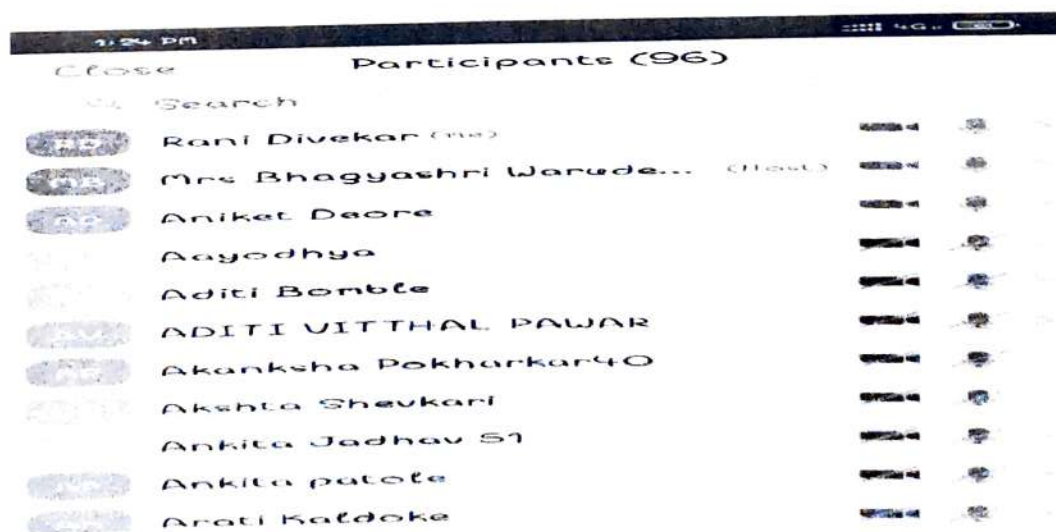 1:34 PM 4G
Close Participants (96)
Search
RD Rani Divekar (me)
MB Mrs Bhagyashri Warude... (Host)
AD Aniket Deore
Aayodhya
Aditi Bomble
AV ADITI VITTHAL PAWAR
AP Akanksha Pokharkar40
Akshta Shevkari
Ankita Jadhav 51
Ankita patole
Arati Kaldoke